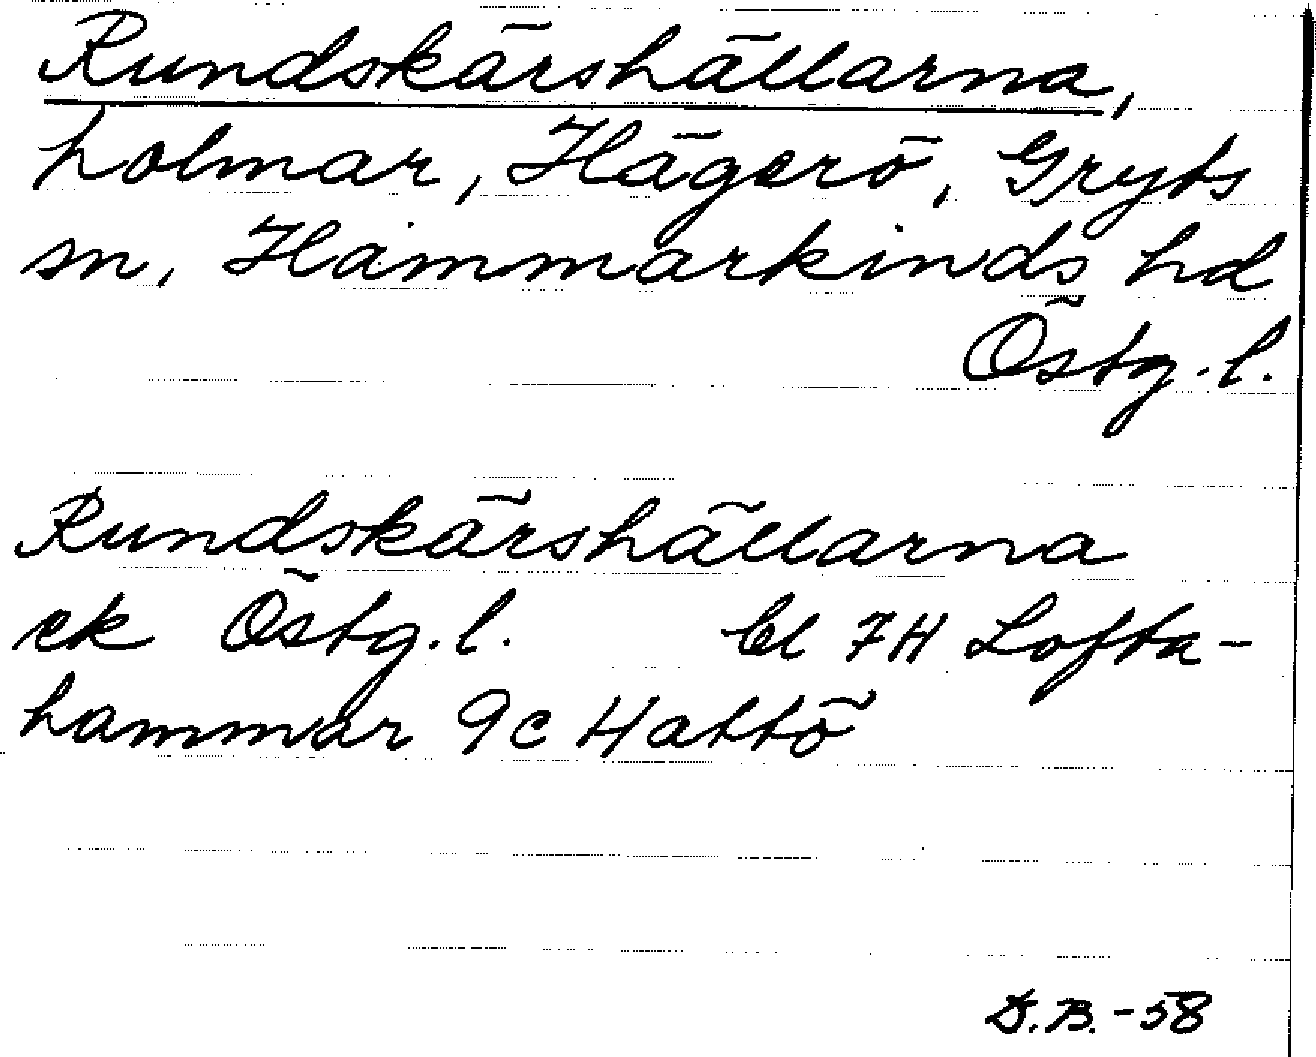 Rundskärshällarna,
holmar, Hägerö, Gryts
sn, Hammarkinds hd
Östg. l.
Rundskärshällarna
ek Östg. l. bl 7H Lofta-
hammar 9c Hattö
D.B. -58